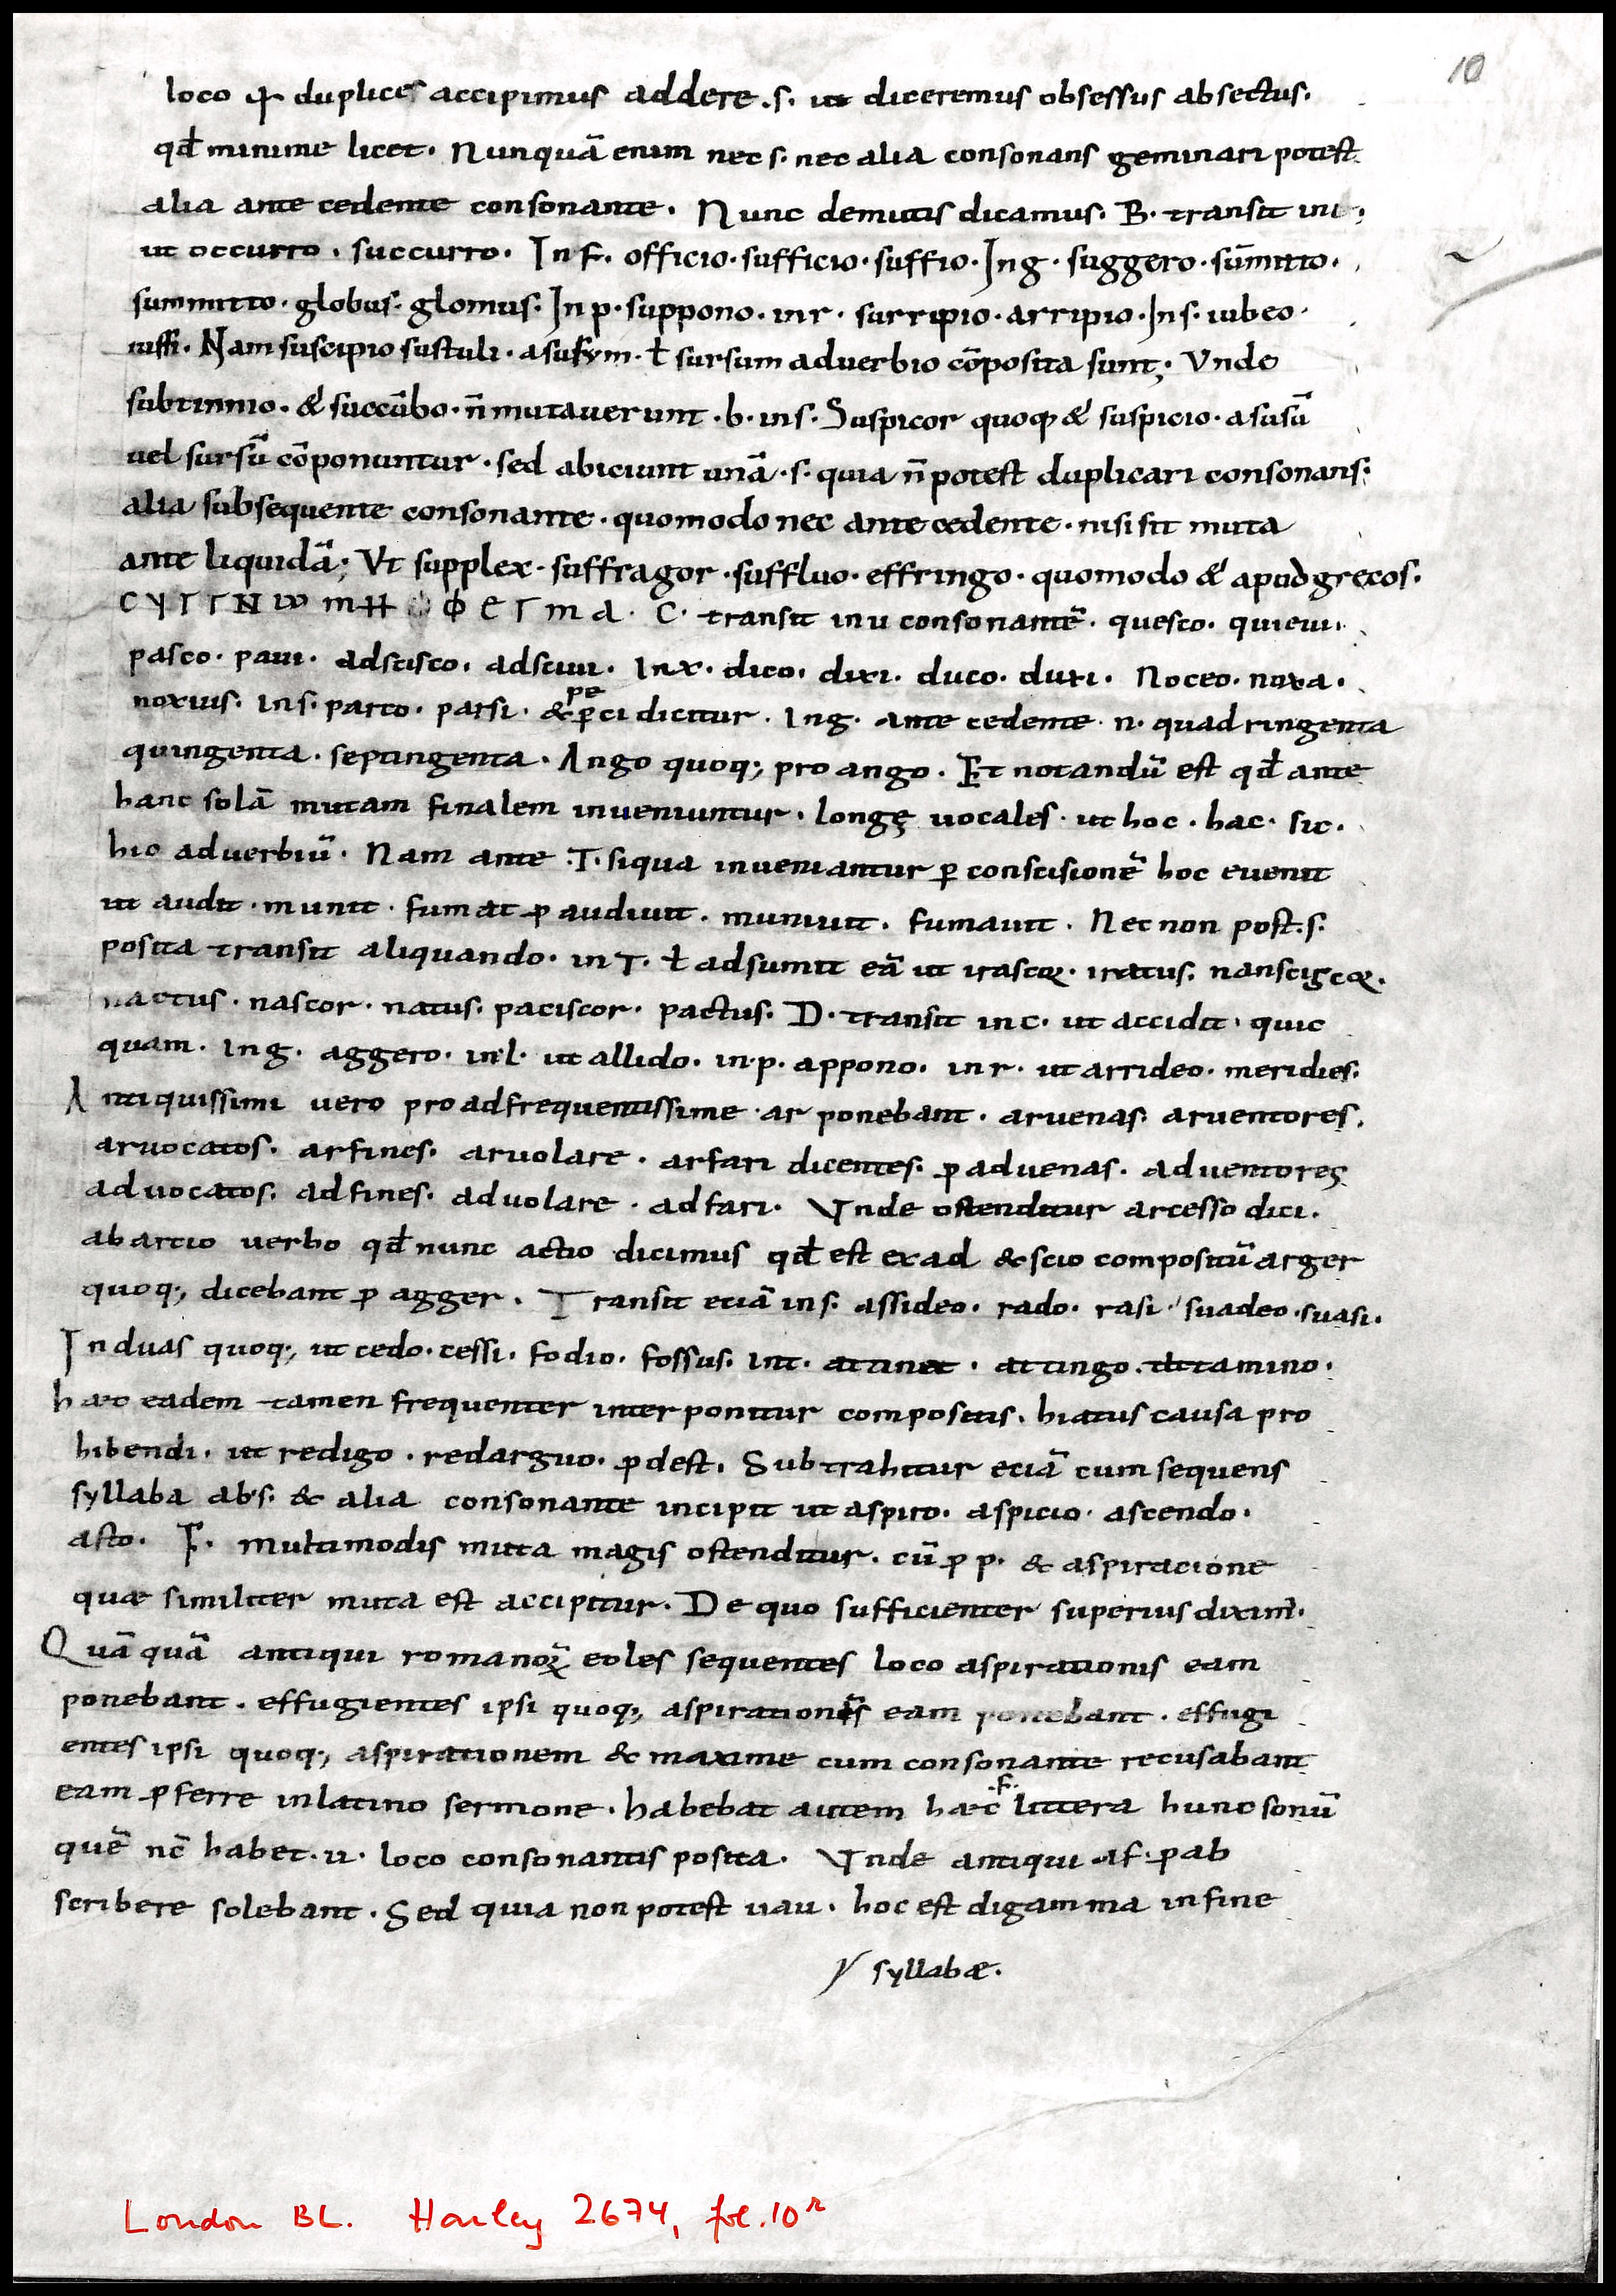 10
loco qͥ duplices accipimus addere .s. ut diceremus obsessus absectus.
qđ minime licet. Nunquā enim nec s. nec alia consonans geminari potest
alia ante cedente consonante. Nunc demutis dicamus. B. transit in
ut occurro. succurro. In F. officio. sufficio. suffio. In g. suggero. sūmitto.
summitto. globus. glomus. In p. suppono. in r. surripio. arripio. In s. iubeo.
iussi. Nam suscipio sustuli. a susum. ł sursum aduerbio cōposita sunt; Vnde
subtinnio. & succūbo. n̄ mutauerunt .b. in s. Suspicor quoq & suspicio. a susū
uel sursū cōponuntur. sed abiciunt unā .s. quia n̄ potest duplicari consonans.
alia subsequente consonante. quomodo nec ante cedente. nisi sit muta
ante liquidā; Vt supplex. suffragor. suffluo. effringo. quomodo & apud grecos.
C. transit in u consonantē. quesco. quieui.
pasco. paui. adscisco. adsciui. In x. dico. dixi. duco. duxi. Noceo. noxa.
noxius. In s. parco. parsi. & peꝑci dicitur. In g. ante cedente n. quadringenta
quingenta. septingenta. Ango quoq; pro ango. Et notandū est qđ ante
hanc solā mutam finalem inueniuntur. longę uocales. ut hoc. hac. sic.
hic aduerbiū. Nam ante .T. siqua inueniantur ꝑ conscisionē hoc euenit
ut audit. munit. fumat ꝓ audiuit. muniuit. fumauit. Nec non post .s.
posita transit aliquando. in T. ł adsumit eā ut irascoꝛ. iratus. nanscigcoꝛ.
nactus. nascor. natus. paciscor. pactus. D. transit in c. ut accidit. quic
quam. In g. aggero. in l. ut allido. in p. appono. in r. ut arrideo. meridies.
Antiquissimi uero pro ad frequentissime ar ponebant. aruenas. aruentores.
aruocatos. arfines. aruolare. arfari dicentes. ꝓ aduenas. aduentores
aduocatos. adfines. aduolare. adfari. Vnde ostenditur arcesso dici.
ab arcio uerbo qđ nunc actio dicimus qđ est ex ad & scio compositū arger
quoq; dicebant ꝓ agger. Transit eciā in s. assideo. rado. rasi. suadeo. suasi.
In duas quoq; ut cedo. cessi. fodio. fossus. In t. attinet. attingo. attamino.
hæc eadem tamen frequenter interponitur compositis. hiatus causa pro
hibendi. ut redigo. redarguo. ꝓdest. Subtrahitur eciā cum sequens
syllaba ab s. & alia consonante incipit ut aspiro. aspicio. ascendo.
asto. F. multimodis muta magis ostenditur. cū ꝓ p. & aspiracione
quæ similiter muta est accipitur. De quo sufficienter superius diximꝰ.
Quā quā antiqui romanoꝝ eoles sequentes loco aspirationis eam
ponebant. effugientes ipsi quoq; aspirationis eam ponebant. effugi
entes ipsi quoq; aspirationem & maxime cum consonante recusabant
eam ꝓferre in latino sermone. habebat autem hæc .F. littera hunc sonū
quē nc̄ habet .u. loco consonantis posita. Vnde antiqui af. ꝓ ab
scribere solebant. Sed quia non potest uau. hoc est digamma in fine
syllabæ.
London BL. Harley 2674, fol. 10r